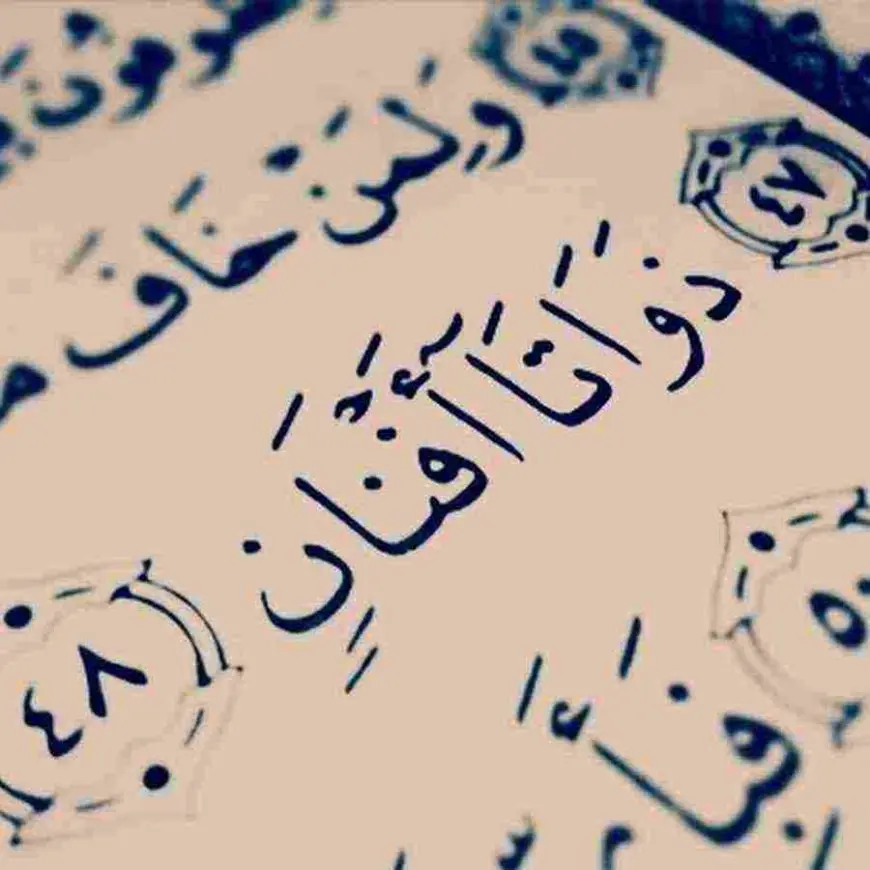 ٤٥ وَلِمَنْ خَافَ
٤٧ ذَوَاتَآ أَفْنَانٍ ٤٨
٥٠ فَبِأَ